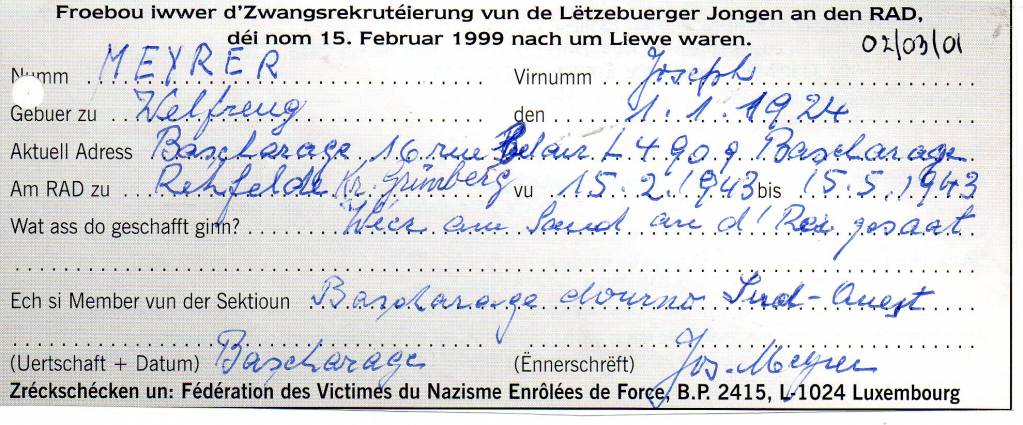 Froebou iwwer d'Zwangsrekrutéierung vun de Lëtzebuerger Jongen an den RAD,
déi nom 15. Februar 1999 nach um Liewe waren.
02/03/01
Numm MEYRER Virnumm Joseph
Gebuer zu Welfreng den 1.1.1924
Aktuell Adress Bascharage 16 rue Belair L 4909 Bascharage
Am RAD zu Rehfelde Kr. Grümberg vu 15.2.1943 bis 15.5.1943
Wat ass do geschafft ginn? am Sand an d' gesaat
Ech si Member vun der Sektioun Bascharage Sud-Ouest
(Uertschaft + Datum) Bascharage (Ënnerschrëft) Jos. Meyrer
Zréckschécken un: Fédération des Victimes du Nazisme Enrôlées de Force, B.P. 2415, L-1024 Luxembourg